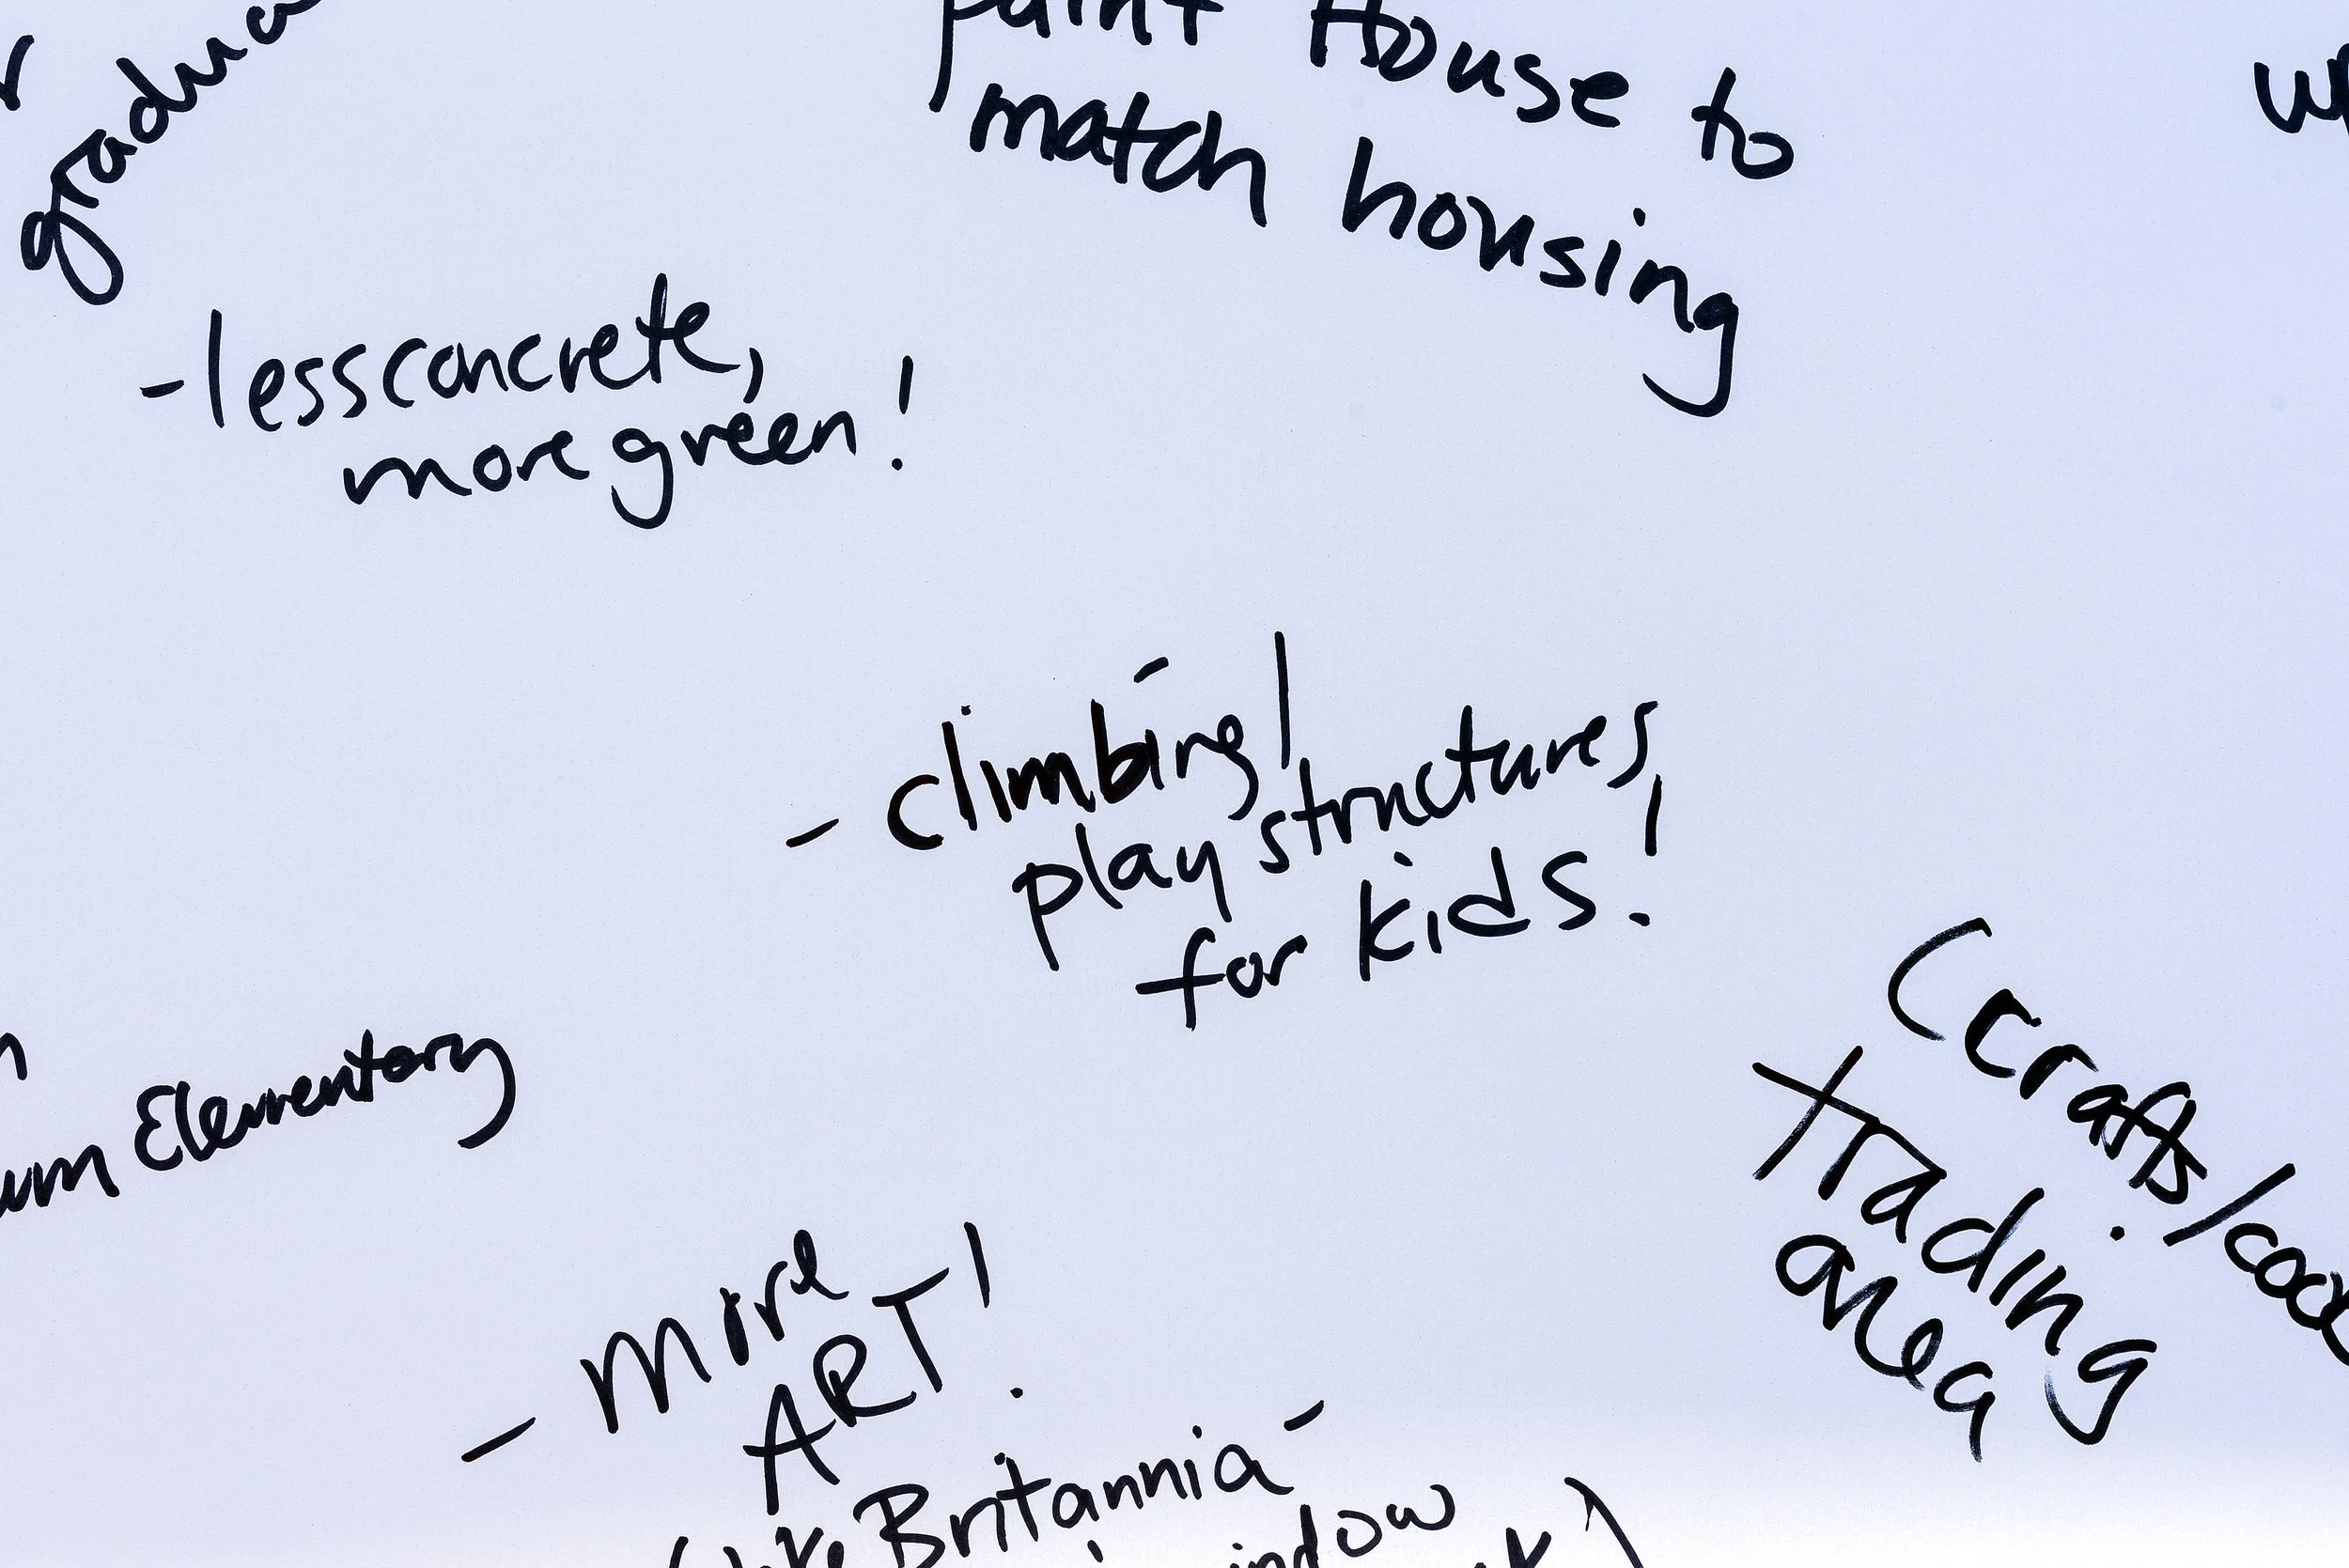 paint House to
match housing
- less concrete,
more green!
- climbing/
play structures
for kids!
Elementary
(crafts/
trading
area
- more
ART!
(like Britannia -
window